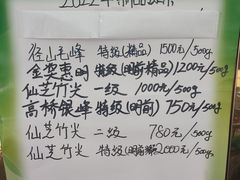 2022年新品发布
径山毛峰 特级(精品) 1500元/500g
金奖惠明 特级(明前精品) 1200元/500g
仙芝竹尖 一级 1000元/500g
高桥银峰 特级(明前) 750元/500g
仙芝竹尖 二级 780元/500g
仙芝竹尖 特级(明前) 2000元/500g